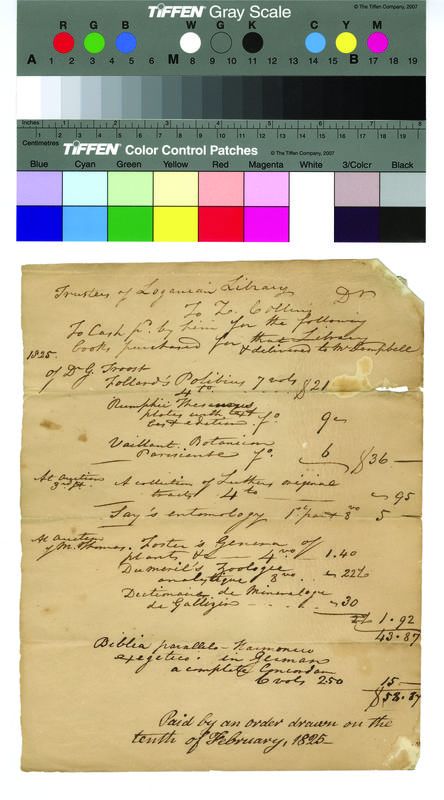 TIFFEN Gray Scale © The Tiffen Company, 2007
R G B W G K C Y M
A 1 2 3 4 5 6 M 8 9 10 11 12 13 14 15 B 17 18 19
Inches 1 2 3 4 5 6 7 8
Centimetres 1 2 3 4 5 6 7 8 9 10 11 12 13 14 15 16 17 18 19
TIFFEN Color Control Patches © The Tiffen Company, 2007
Blue Cyan Green Yellow Red Magenta White 3/Color Black
Trustees of Loganian Library
To Z. Collins Dr
To Cash pd. by him for the following
books purchased for that Library
& delivered to Mr Campbell
1825.
of Dr G. Troost
Follard's Polibius 7 vols
4to $21
Rumphii Thesaurus
plates with text fo.
best edition 9
Vaillant Botanicon
Parisiense fo. 6 $36 —
At auction
A collection of Luthers original
tracts 4to 95
Say's entomology 1st part 8vo 5 —
At auction
of M. Thomas. Foster's Genera of
plants &c — 4to 1.40
Dumeril's Zoologie
analytique 8vo 22½
Dictionaire de Mineralogie
de Gallizin 30
1.92
43.87
Biblia parallelo-Harmonico
exegetico. in German
a complete Concordan
6 vols 250 15 —
$58.87
Paid by an order drawn on the
tenth of February, 1825—